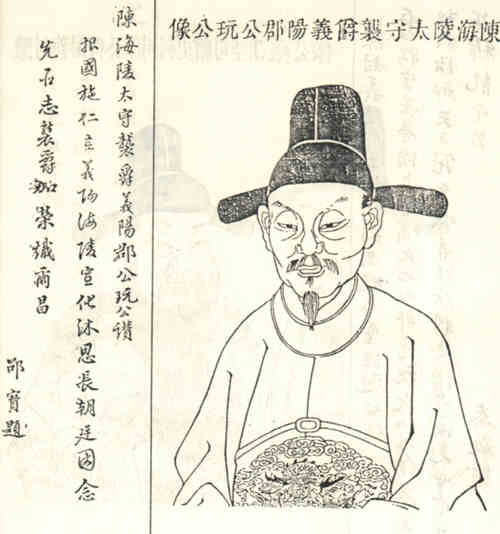 陳海陵太守襲爵義陽郡公玩公像
陳海陵太守襲爵義陽郡公玩公讃
報國施仁立義陽海陵宣化沐恩長朝廷因念
先臣志襲爵加榮熾而昌
邵寶題